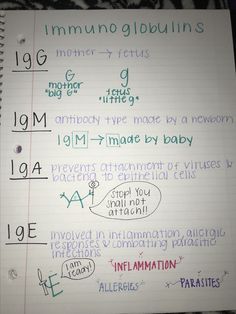 immunoglobulins
IgG
mother → fetus
G
mother
"big G"
g
fetus
"little g"
IgM
antibody type made by a newborn
IgM → made by baby
IgA
prevents attachment of viruses &
bacteria to epithelial cells
A
stop! you
shall not
attach!!
IgE
involved in inflammation, allergic
responses & combating parasitic
infections
E
I am
ready!
INFLAMMATION
ALLERGIES
PARASITES